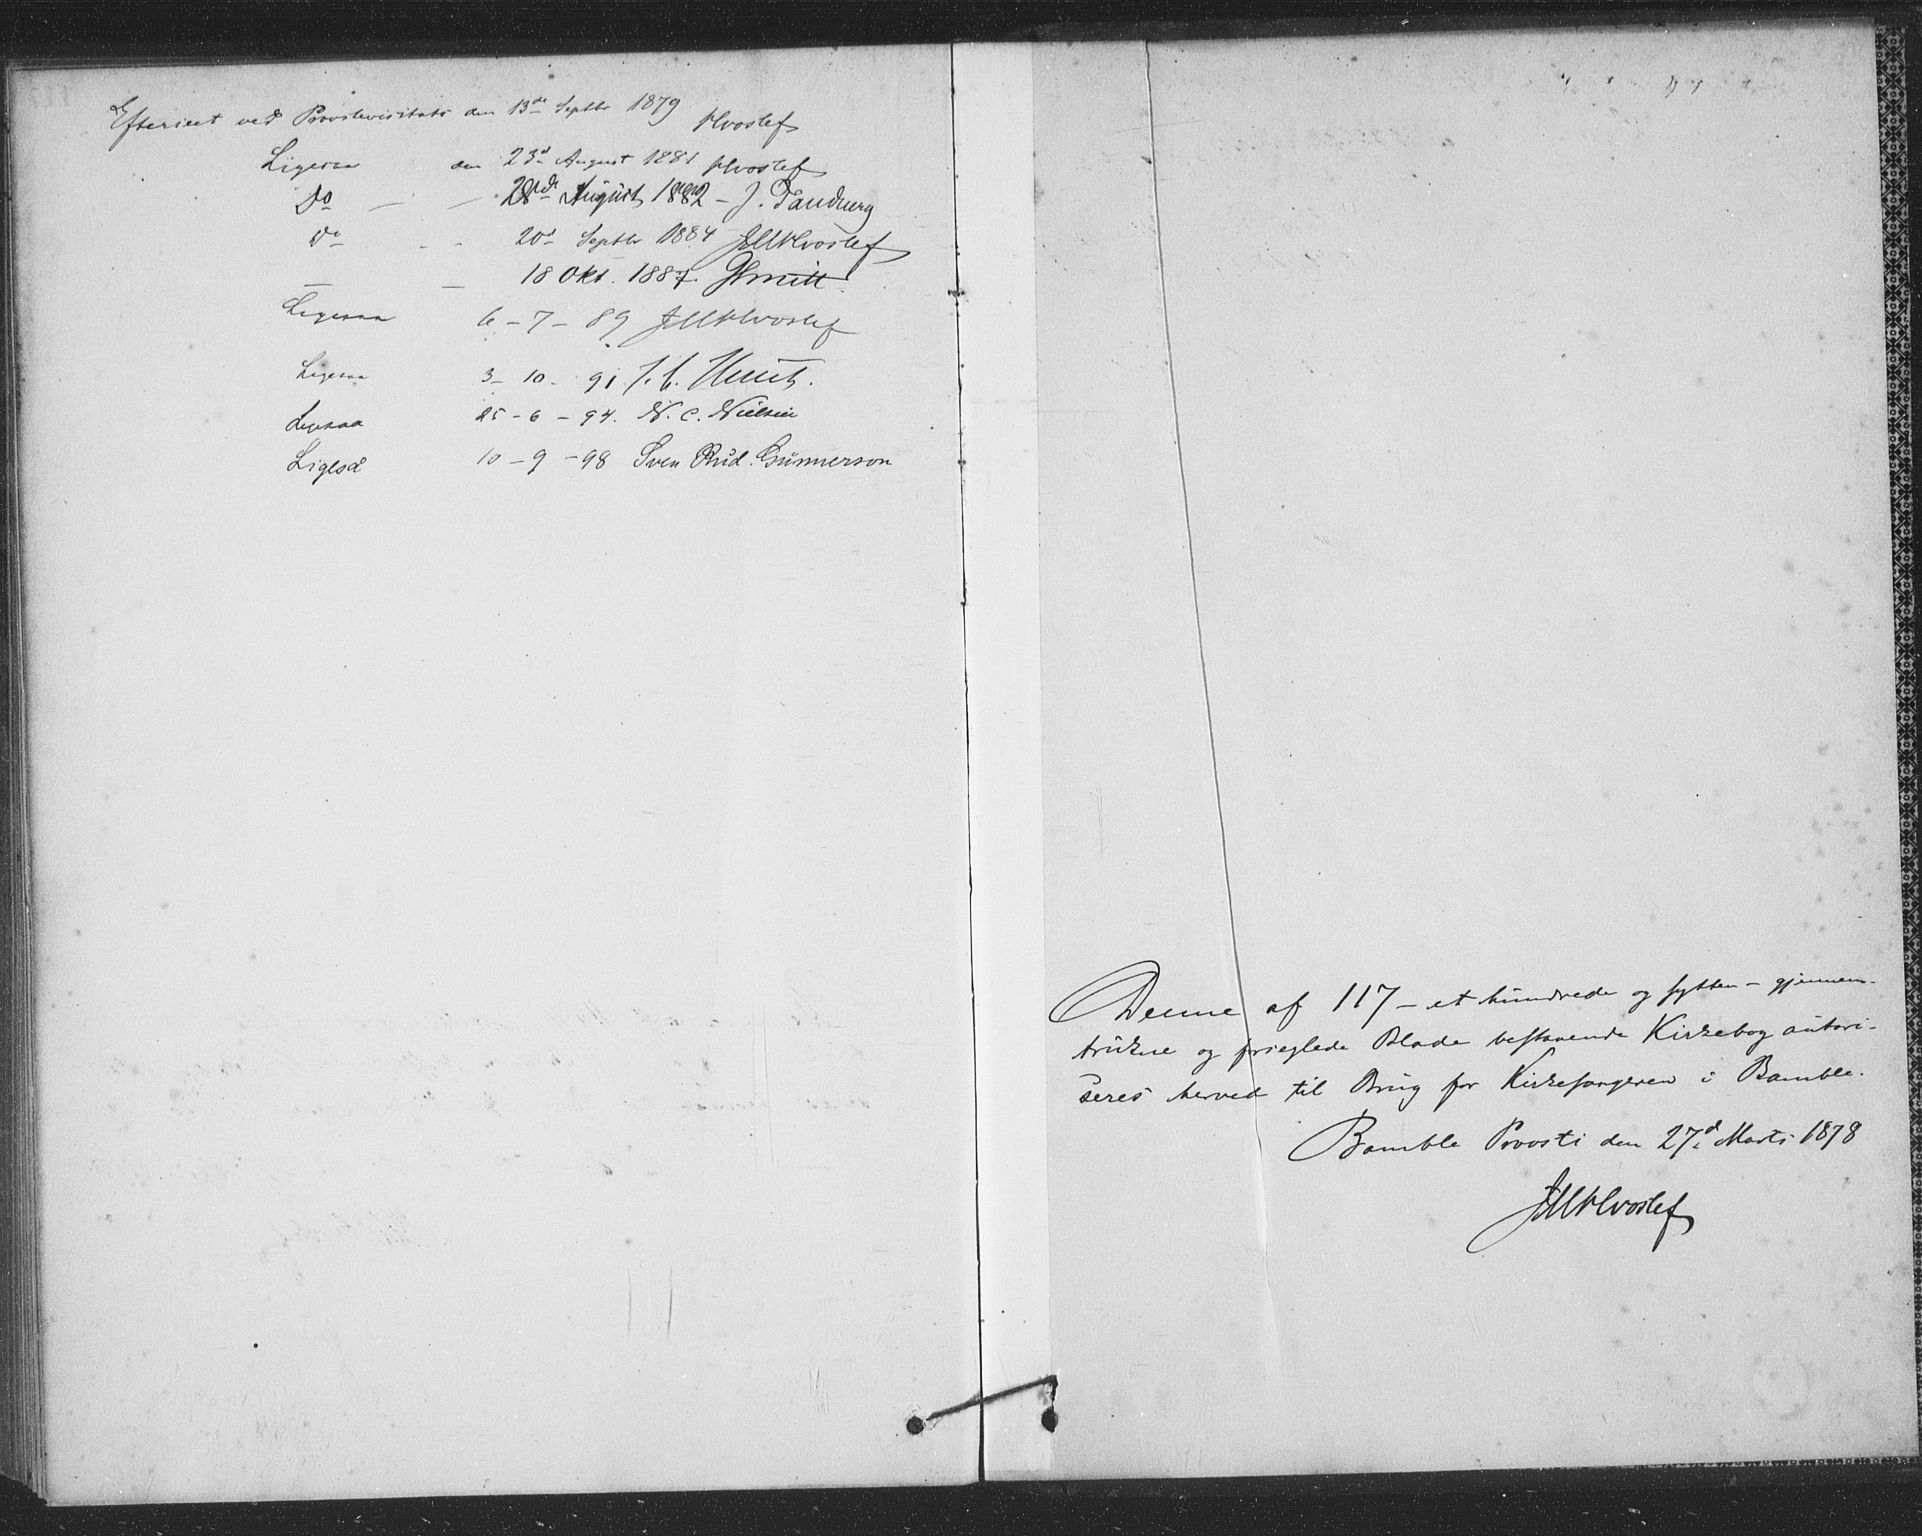 Efterseet ved Provstevisitats den 13de Septbr 1879 Hvoslef
Ligesaa den 23d August 1881 Hvoslef
Do — — 28de August 1882 – J. Tandberg
Do - - 20d Septbr 1884 JMHvoslef
— — 18 Okt. 1887. JSmitt
Ligesaa 6 – 7 – 89 JMHvoslef
Ligesaa 3 – 10 – 91
Ligesaa 25 – 6 – 94. N. C. Nielsen
Ligeså 10 – 9 – 98 Sven Rud. Gunnerson
Denne af 117 – et hundrede og sytten – gjennem-
trukne og forseglede Blade bestaaende Kirkebog autori-
seres herved til Brug for Kirkesangeren i Bamble.
Bamble Provsti den 27d Marts 1878
JMHvoslef